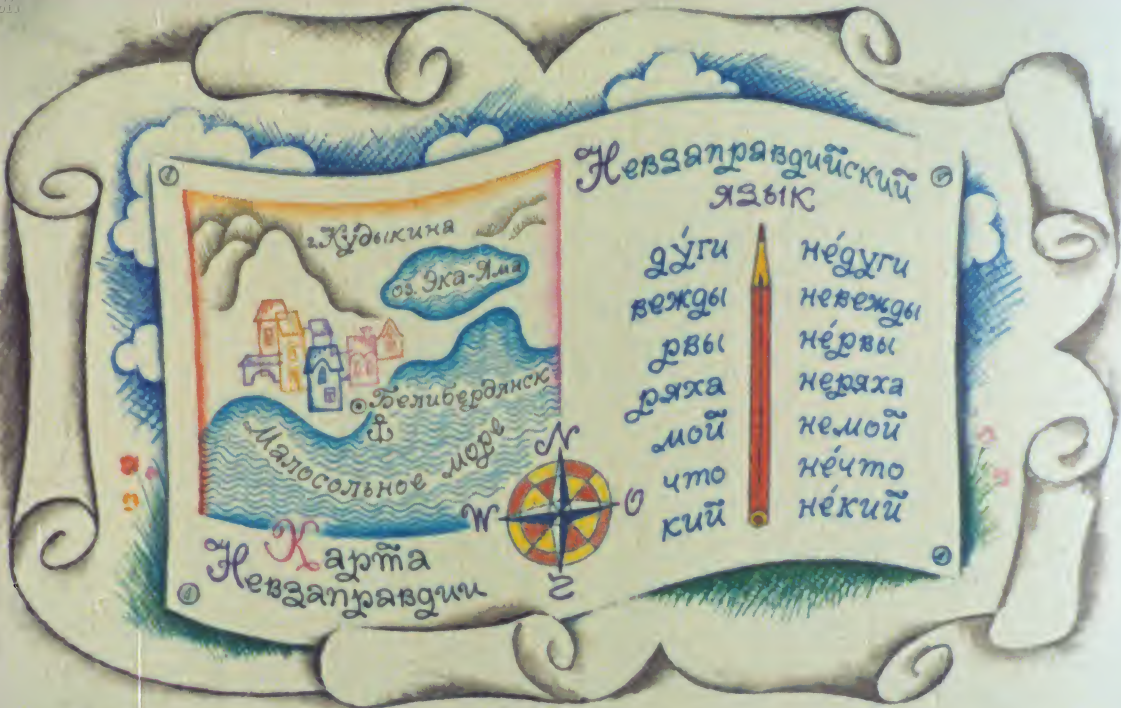 г. Кудыкина
оз. Эка-Яма
Белибердянск
Малосольное море
Карта
Невзаправдии
N
W
O
S
Невзаправдийский
язык
ду́ги не́дуги
вежды невежды
рвы не́рвы
ряха неряха
мой немой
что не́что
кий не́кий